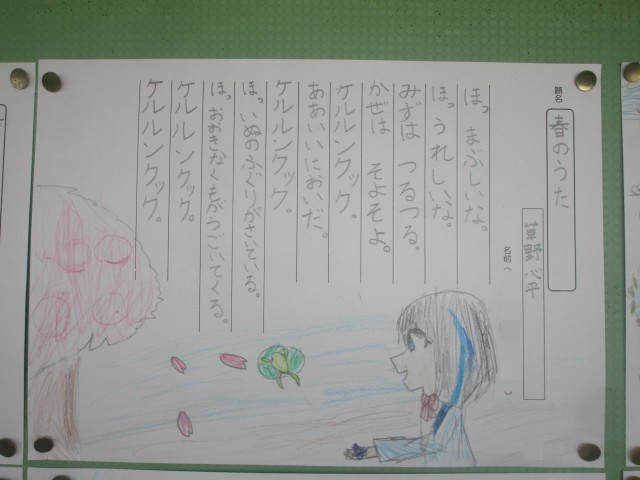 題名
春のうた
草野心平
名前(
)
ほっ まぶしいな。
ほっ うれしいな。
みずは つるつる。
かぜは そよそよ。
ケルルンクック。
ああいいにおいだ。
ケルルンクック。
ほっ いぬのふぐりがさいている。
ほっ おおきなくもがうごいてくる。
ケルルンクック。
ケルルンクック。